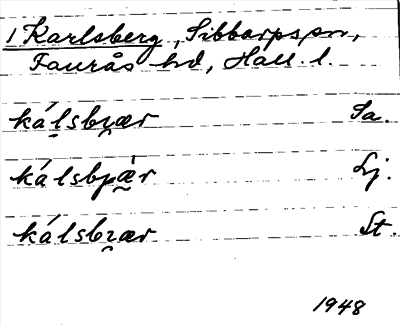 1 Karlsberg, Sibbarps sn,
Faurås hd, Hall. l.
kálsbɿ̯ær Sa.
kálsbɿæ̀r Lj.
kálsbɿ̯ær St.
1948